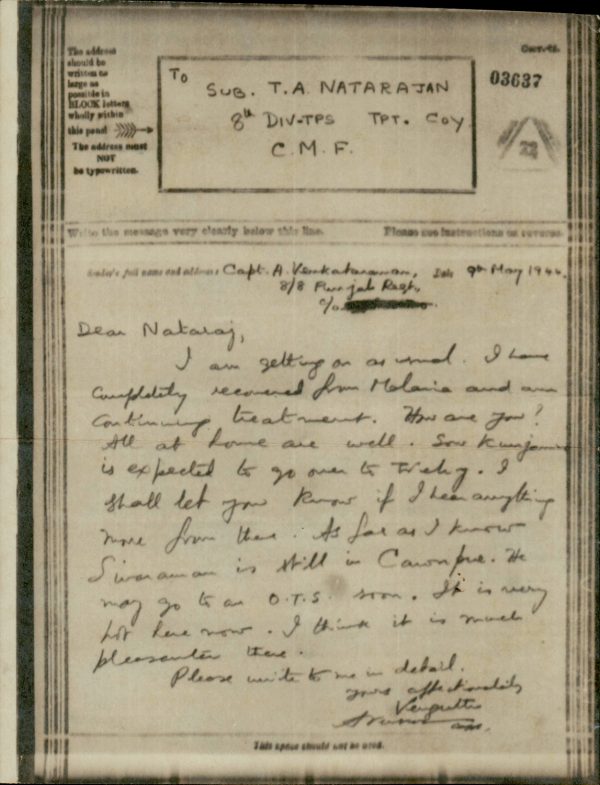 The address
should be
written as
large as
possible in
BLOCK letters
wholly within
this panel
The address must
NOT
be typewritten.
To
SUB. T.A. NATARAJAN
8th DIV-TPS TPT. COY
C.M.F.
03637
22
Write the message very clearly below this line.
Please see instructions on reverse.
Sender's full name and address: Capt. A. Venkataraman, Date 9th May 1944.
8/8 Punjab Regt,
c/o
Dear Nataraj,
I am getting on as usual. I have
completely recovered from Malaria and am
continuing treatment. How are you?
All at home are well. Sow
is expected to go over to Trichy. I
shall let you know if I hear anything
more from there. As far as I know
Sivaraman is still in Cawnpore. He
may go to an O.T.S. soon. It is very
hot here now. I think it is much
pleasanter there.
Please write to me in detail.
yours affectionately
This space should not be used.